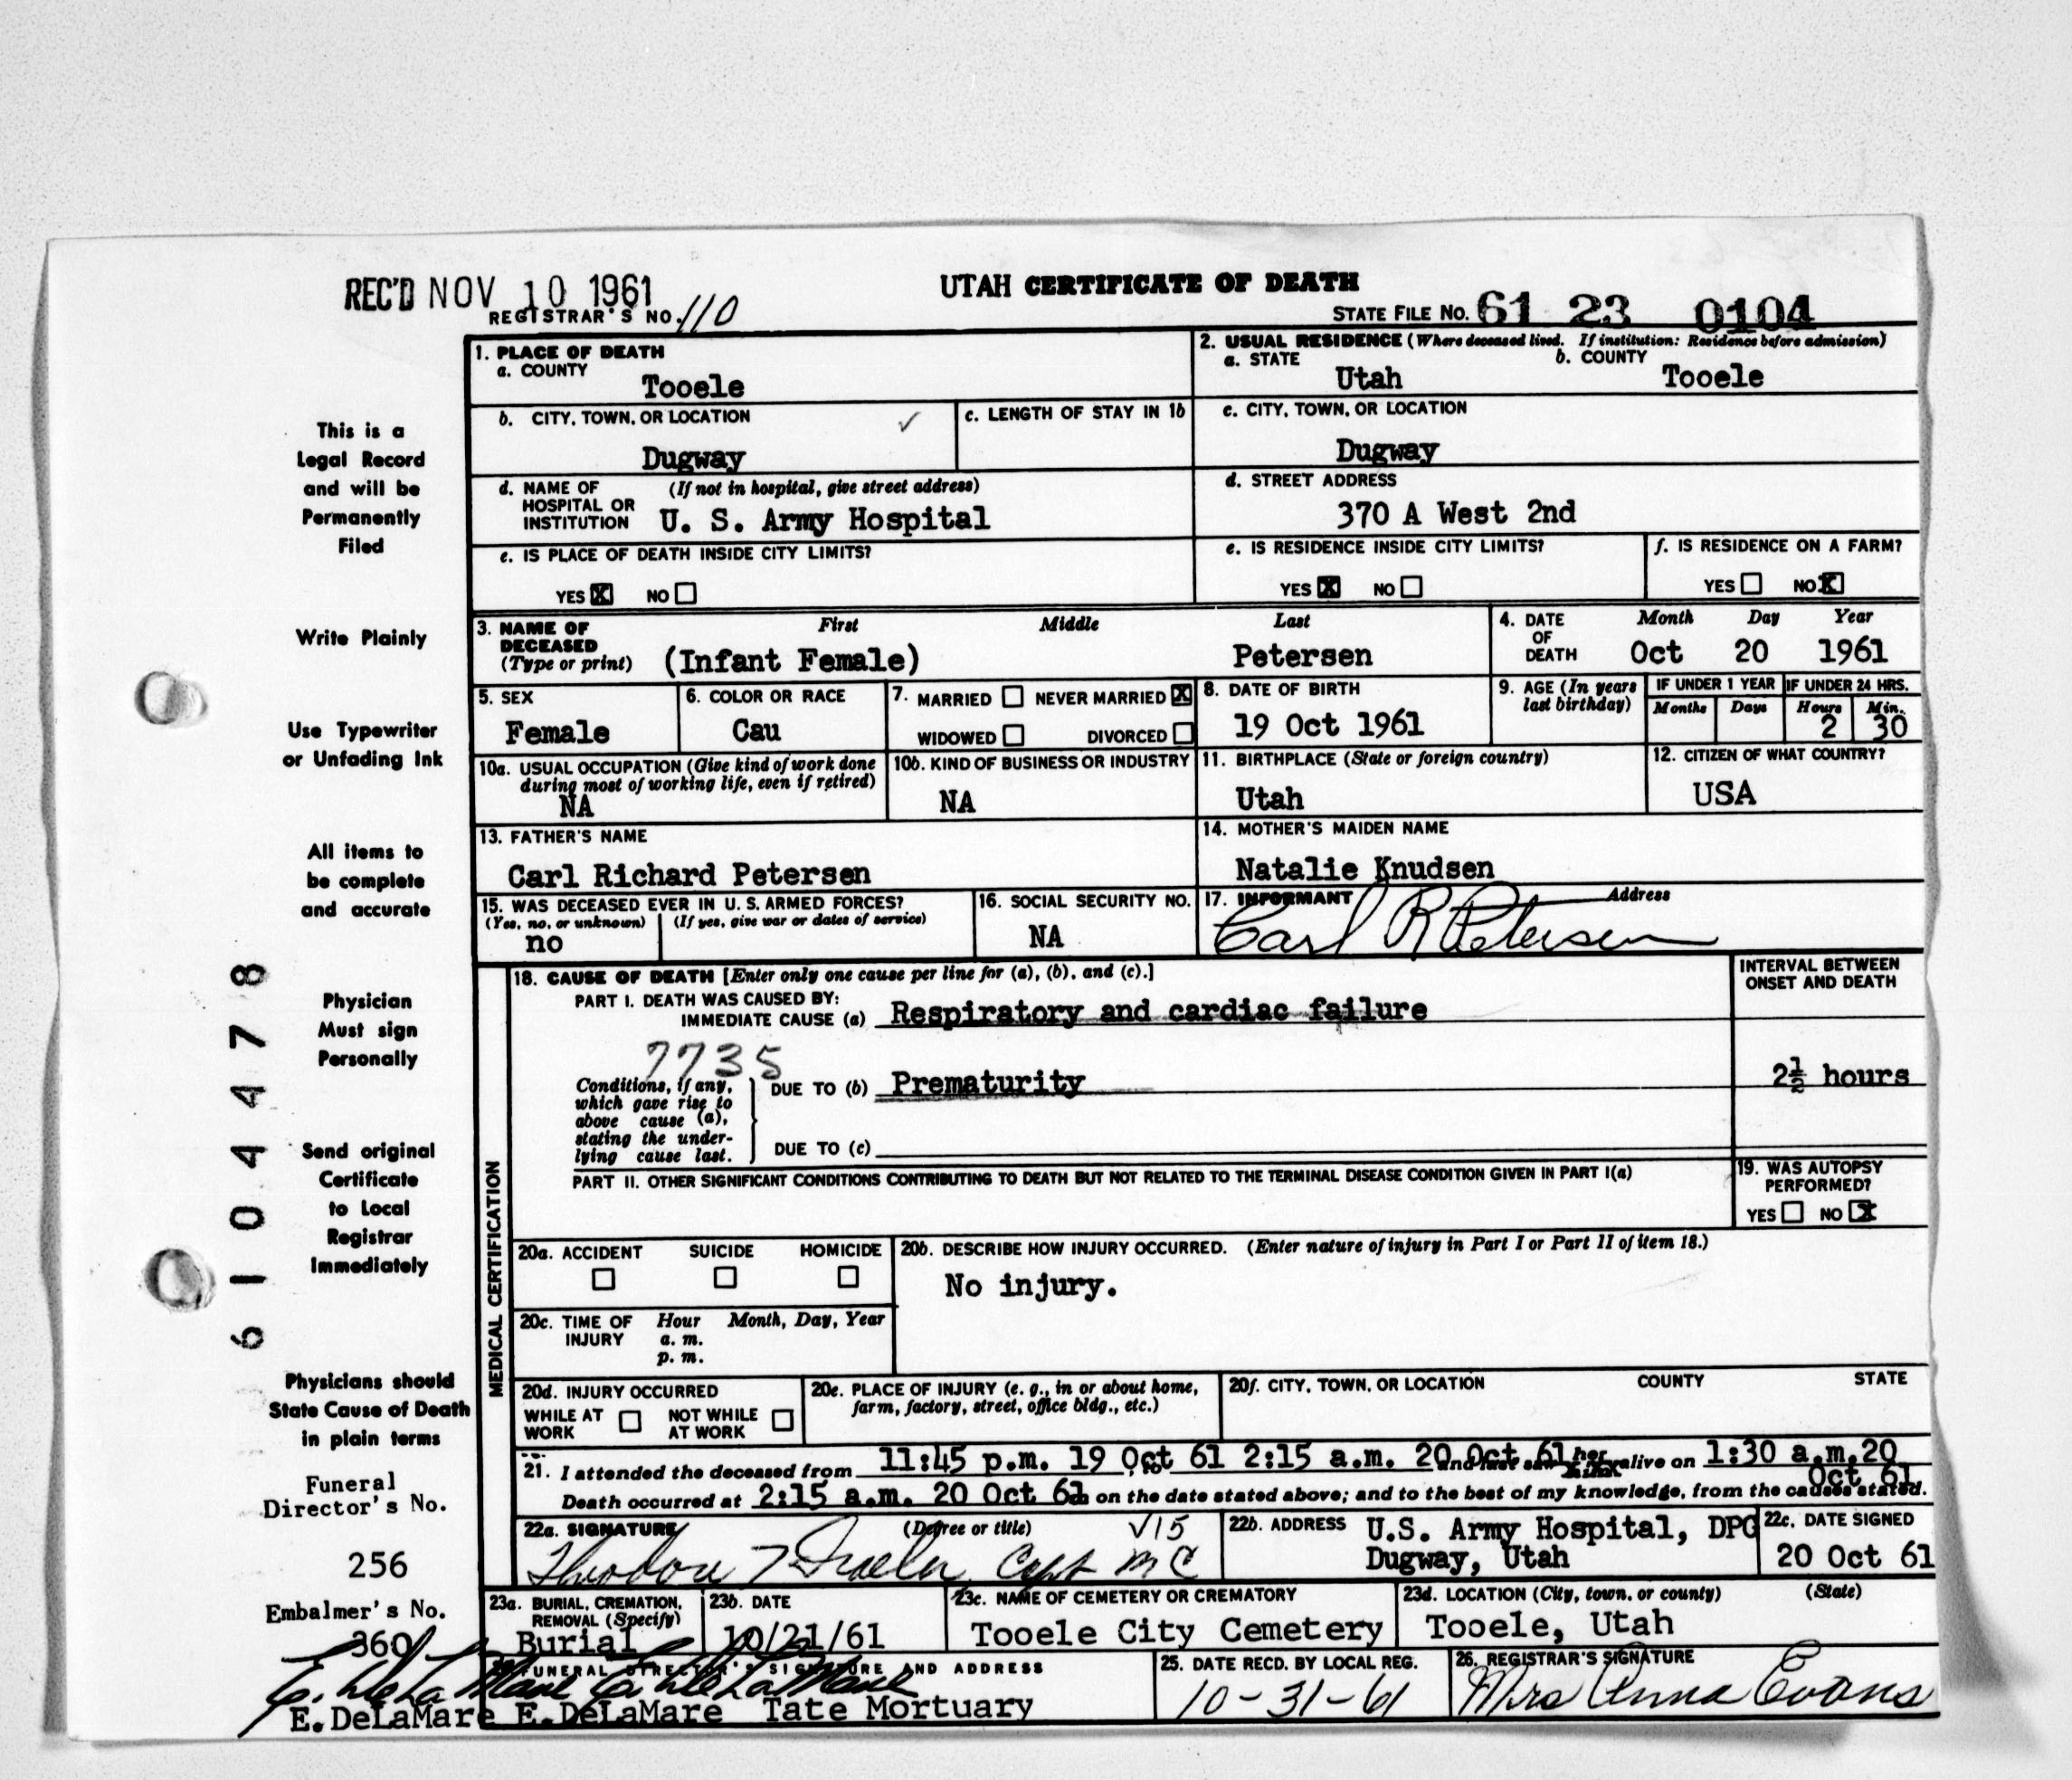 REC'D NOV 10 1961
UTAH CERTIFICATE OF DEATH
REGISTRAR'S NO. 110
STATE FILE NO. 61 23 0104
1. PLACE OF DEATH
a. COUNTY
Tooele
2. USUAL RESIDENCE (Where deceased lived. If institution: Residence before admission)
a. STATE
Utah
b. COUNTY
Tooele
b. CITY, TOWN, OR LOCATION ✓
Dugway
c. LENGTH OF STAY IN 1b
c. CITY, TOWN, OR LOCATION
Dugway
d. NAME OF HOSPITAL OR INSTITUTION (If not in hospital, give street address)
U. S. Army Hospital
d. STREET ADDRESS
370 A West 2nd
e. IS PLACE OF DEATH INSIDE CITY LIMITS?
YES X NO
e. IS RESIDENCE INSIDE CITY LIMITS?
YES X NO
f. IS RESIDENCE ON A FARM?
YES NO X
3. NAME OF DECEASED (Type or print)
First Middle Last
(Infant Female) Petersen
4. DATE OF DEATH
Month Day Year
Oct 20 1961
5. SEX
Female
6. COLOR OR RACE
Cau
7. MARRIED NEVER MARRIED X
WIDOWED DIVORCED
8. DATE OF BIRTH
19 Oct 1961
9. AGE (In years last birthday)
IF UNDER 1 YEAR
Months Days
IF UNDER 24 HRS.
Hours Min.
2 30
10a. USUAL OCCUPATION (Give kind of work done during most of working life, even if retired)
NA
10b. KIND OF BUSINESS OR INDUSTRY
NA
11. BIRTHPLACE (State or foreign country)
Utah
12. CITIZEN OF WHAT COUNTRY?
USA
13. FATHER'S NAME
Carl Richard Petersen
14. MOTHER'S MAIDEN NAME
Natalie Knudsen
15. WAS DECEASED EVER IN U. S. ARMED FORCES?
(Yes, no, or unknown) (If yes, give war or dates of service)
no
16. SOCIAL SECURITY NO.
NA
17. INFORMANT Address
Carl R Petersen
MEDICAL CERTIFICATION
18. CAUSE OF DEATH [Enter only one cause per line for (a), (b), and (c).]
INTERVAL BETWEEN ONSET AND DEATH
PART I. DEATH WAS CAUSED BY:
IMMEDIATE CAUSE (a) Respiratory and cardiac failure
7735
Conditions, if any, which gave rise to above cause (a), stating the underlying cause last.
DUE TO (b) Prematurity
2½ hours
DUE TO (c)
PART II. OTHER SIGNIFICANT CONDITIONS CONTRIBUTING TO DEATH BUT NOT RELATED TO THE TERMINAL DISEASE CONDITION GIVEN IN PART I(a)
19. WAS AUTOPSY PERFORMED?
YES NO X
20a. ACCIDENT SUICIDE HOMICIDE
20b. DESCRIBE HOW INJURY OCCURRED. (Enter nature of injury in Part I or Part II of item 18.)
No injury.
20c. TIME OF INJURY Hour Month, Day, Year
a. m.
p. m.
20d. INJURY OCCURRED
WHILE AT WORK NOT WHILE AT WORK
20e. PLACE OF INJURY (e. g., in or about home, farm, factory, street, office bldg., etc.)
20f. CITY, TOWN, OR LOCATION COUNTY STATE
21. I attended the deceased from 11:45 p.m. 19 Oct 61 to 2:15 a.m. 20 Oct 61 and last saw her alive on 1:30 a.m. 20 Oct 61.
Death occurred at 2:15 a.m. 20 Oct 61 on the date stated above; and to the best of my knowledge, from the causes stated.
22a. SIGNATURE (Degree or title) V15
Capt MC
22b. ADDRESS U.S. Army Hospital, DPG
Dugway, Utah
22c. DATE SIGNED
20 Oct 61
23a. BURIAL, CREMATION, REMOVAL (Specify)
Burial
23b. DATE
10/21/61
23c. NAME OF CEMETERY OR CREMATORY
Tooele City Cemetery
23d. LOCATION (City, town, or county) (State)
Tooele, Utah
FUNERAL DIRECTOR'S SIGNATURE AND ADDRESS
E. DeLaMare E. DeLaMare
E. DeLaMare E. DeLaMare Tate Mortuary
25. DATE RECD. BY LOCAL REG.
10-31-61
26. REGISTRAR'S SIGNATURE
Mrs Anna Evans
This is a
Legal Record
and will be
Permanently
Filed
Write Plainly
Use Typewriter
or Unfading Ink
All items to
be complete
and accurate
Physician
Must sign
Personally
Send original
Certificate
to Local
Registrar
Immediately
Physicians should
State Cause of Death
in plain terms
Funeral
Director's No.
256
Embalmer's No.
360
6104478